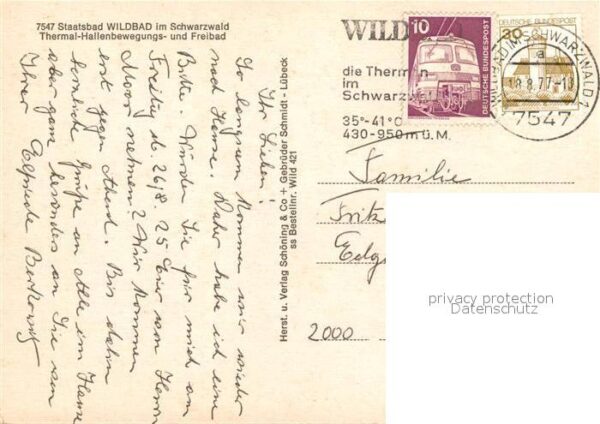 7547 Staatsbad WILDBAD im Schwarzwald
Thermal-Hallenbewegungs- und Freibad
Ihr Lieben!
So langsam kommen wir wieder
nach Hause. Daher habe ich eine
Bitte. Würden Sie für mich am
Freitag d. 26/8. 25 Eier von Herrn
Moor nehmen? Wir kommen
erst gegen Abend. Bis dahin
herzliche Grüße an Alle im Hause
aber ganz besonders an Sie von
Ihrer Elfriede
Herst. u. Verlag Schöning & Co + Gebrüder Schmidt - Lübeck
ss Bestellnr. Wild 421
WILD
die Thermen
im
Schwarzwald
35°-41°C
430-950 m ü. M.
10
DEUTSCHE BUNDESPOST
30
DEUTSCHE BUNDESPOST
WILDBAD IM SCHWARZWALD 1
a
18.8.77-13
7547
Familie
Fritz
2000
privacy protection
Datenschutz